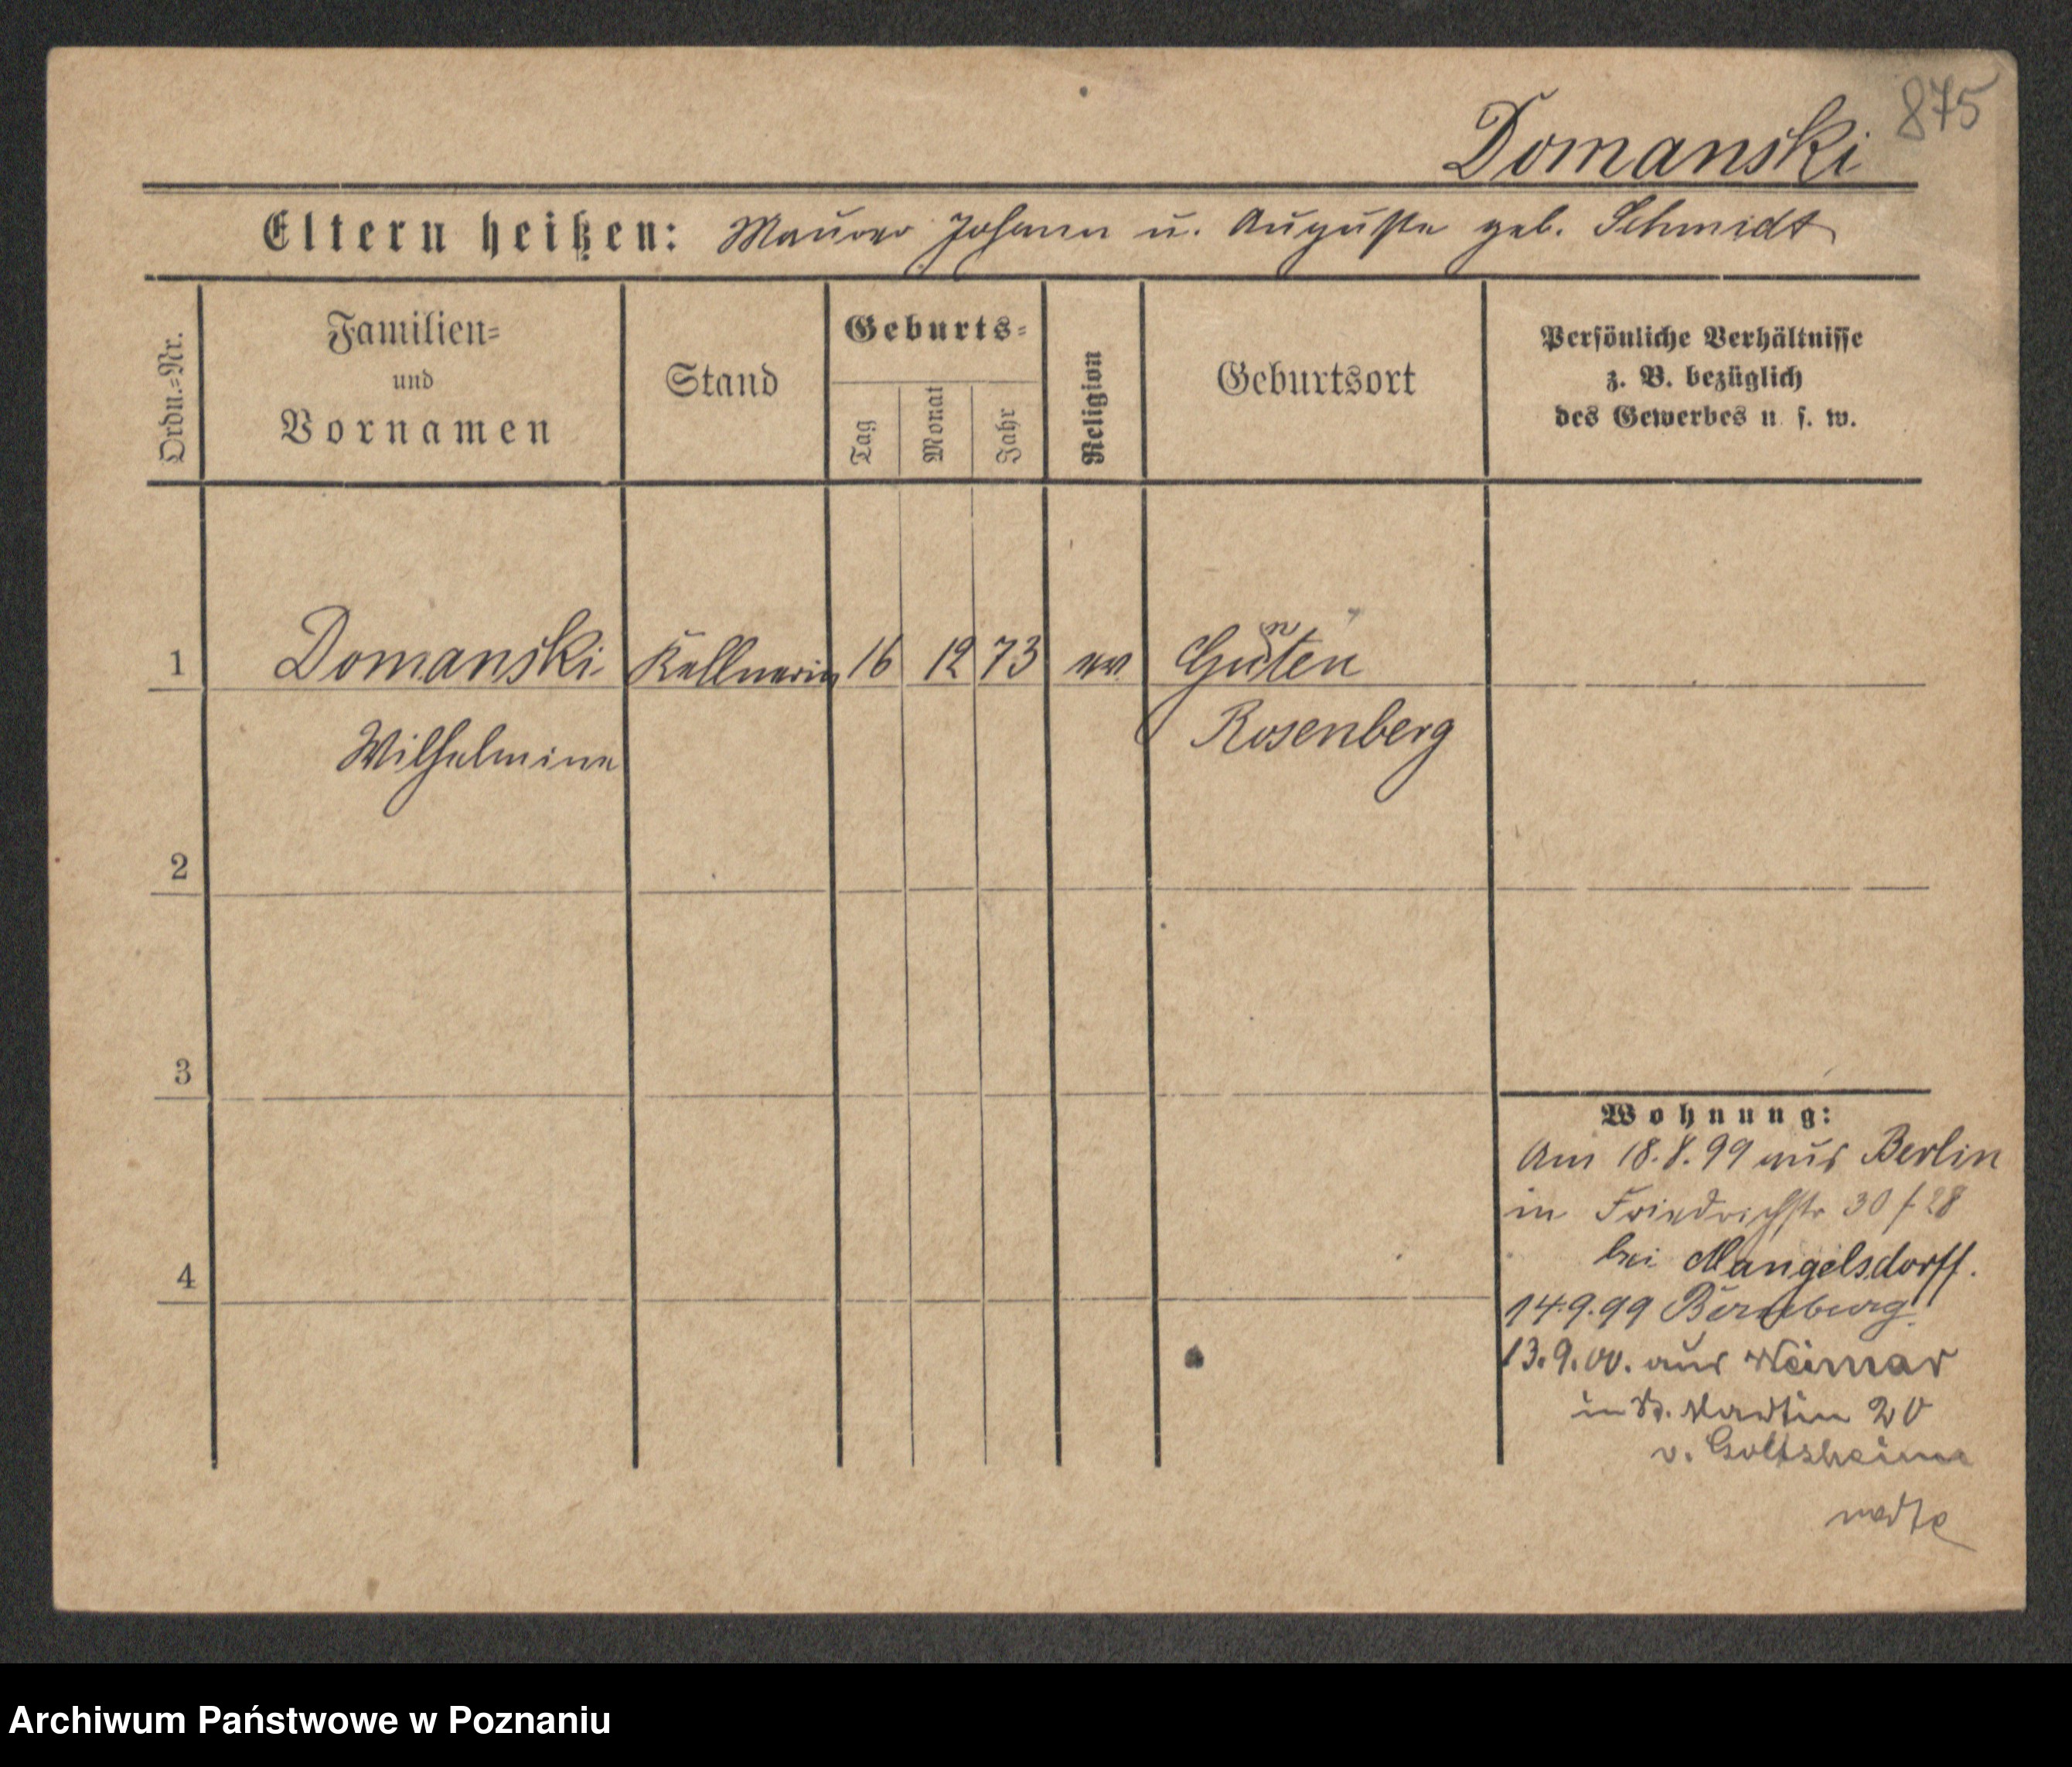 875
Domanski
Eltern heißen: Maurer Johann u. Auguste geb. Schmidt
Ordn.=Nr.
Familien=
und
Vornamen
Stand
Geburts=
Tag
Monat
Jahr
Religion
Geburtsort
Persönliche Verhältnisse
z. B. bezüglich
des Gewerbes u. s. w.
1 Domanski Kellnerin 16 12 73 ev
Wilhelmine Rosenberg
2
3
4
Wohnung:
Am 18.8.99 aus Berlin
in Friedrichstr 30 /28
bei Mangelsdorff.
14.9.99 Bernburg
13.9.00. aus Weimar
in St. Martin 20
v. Goltsheim
Archiwum Państwowe w Poznaniu